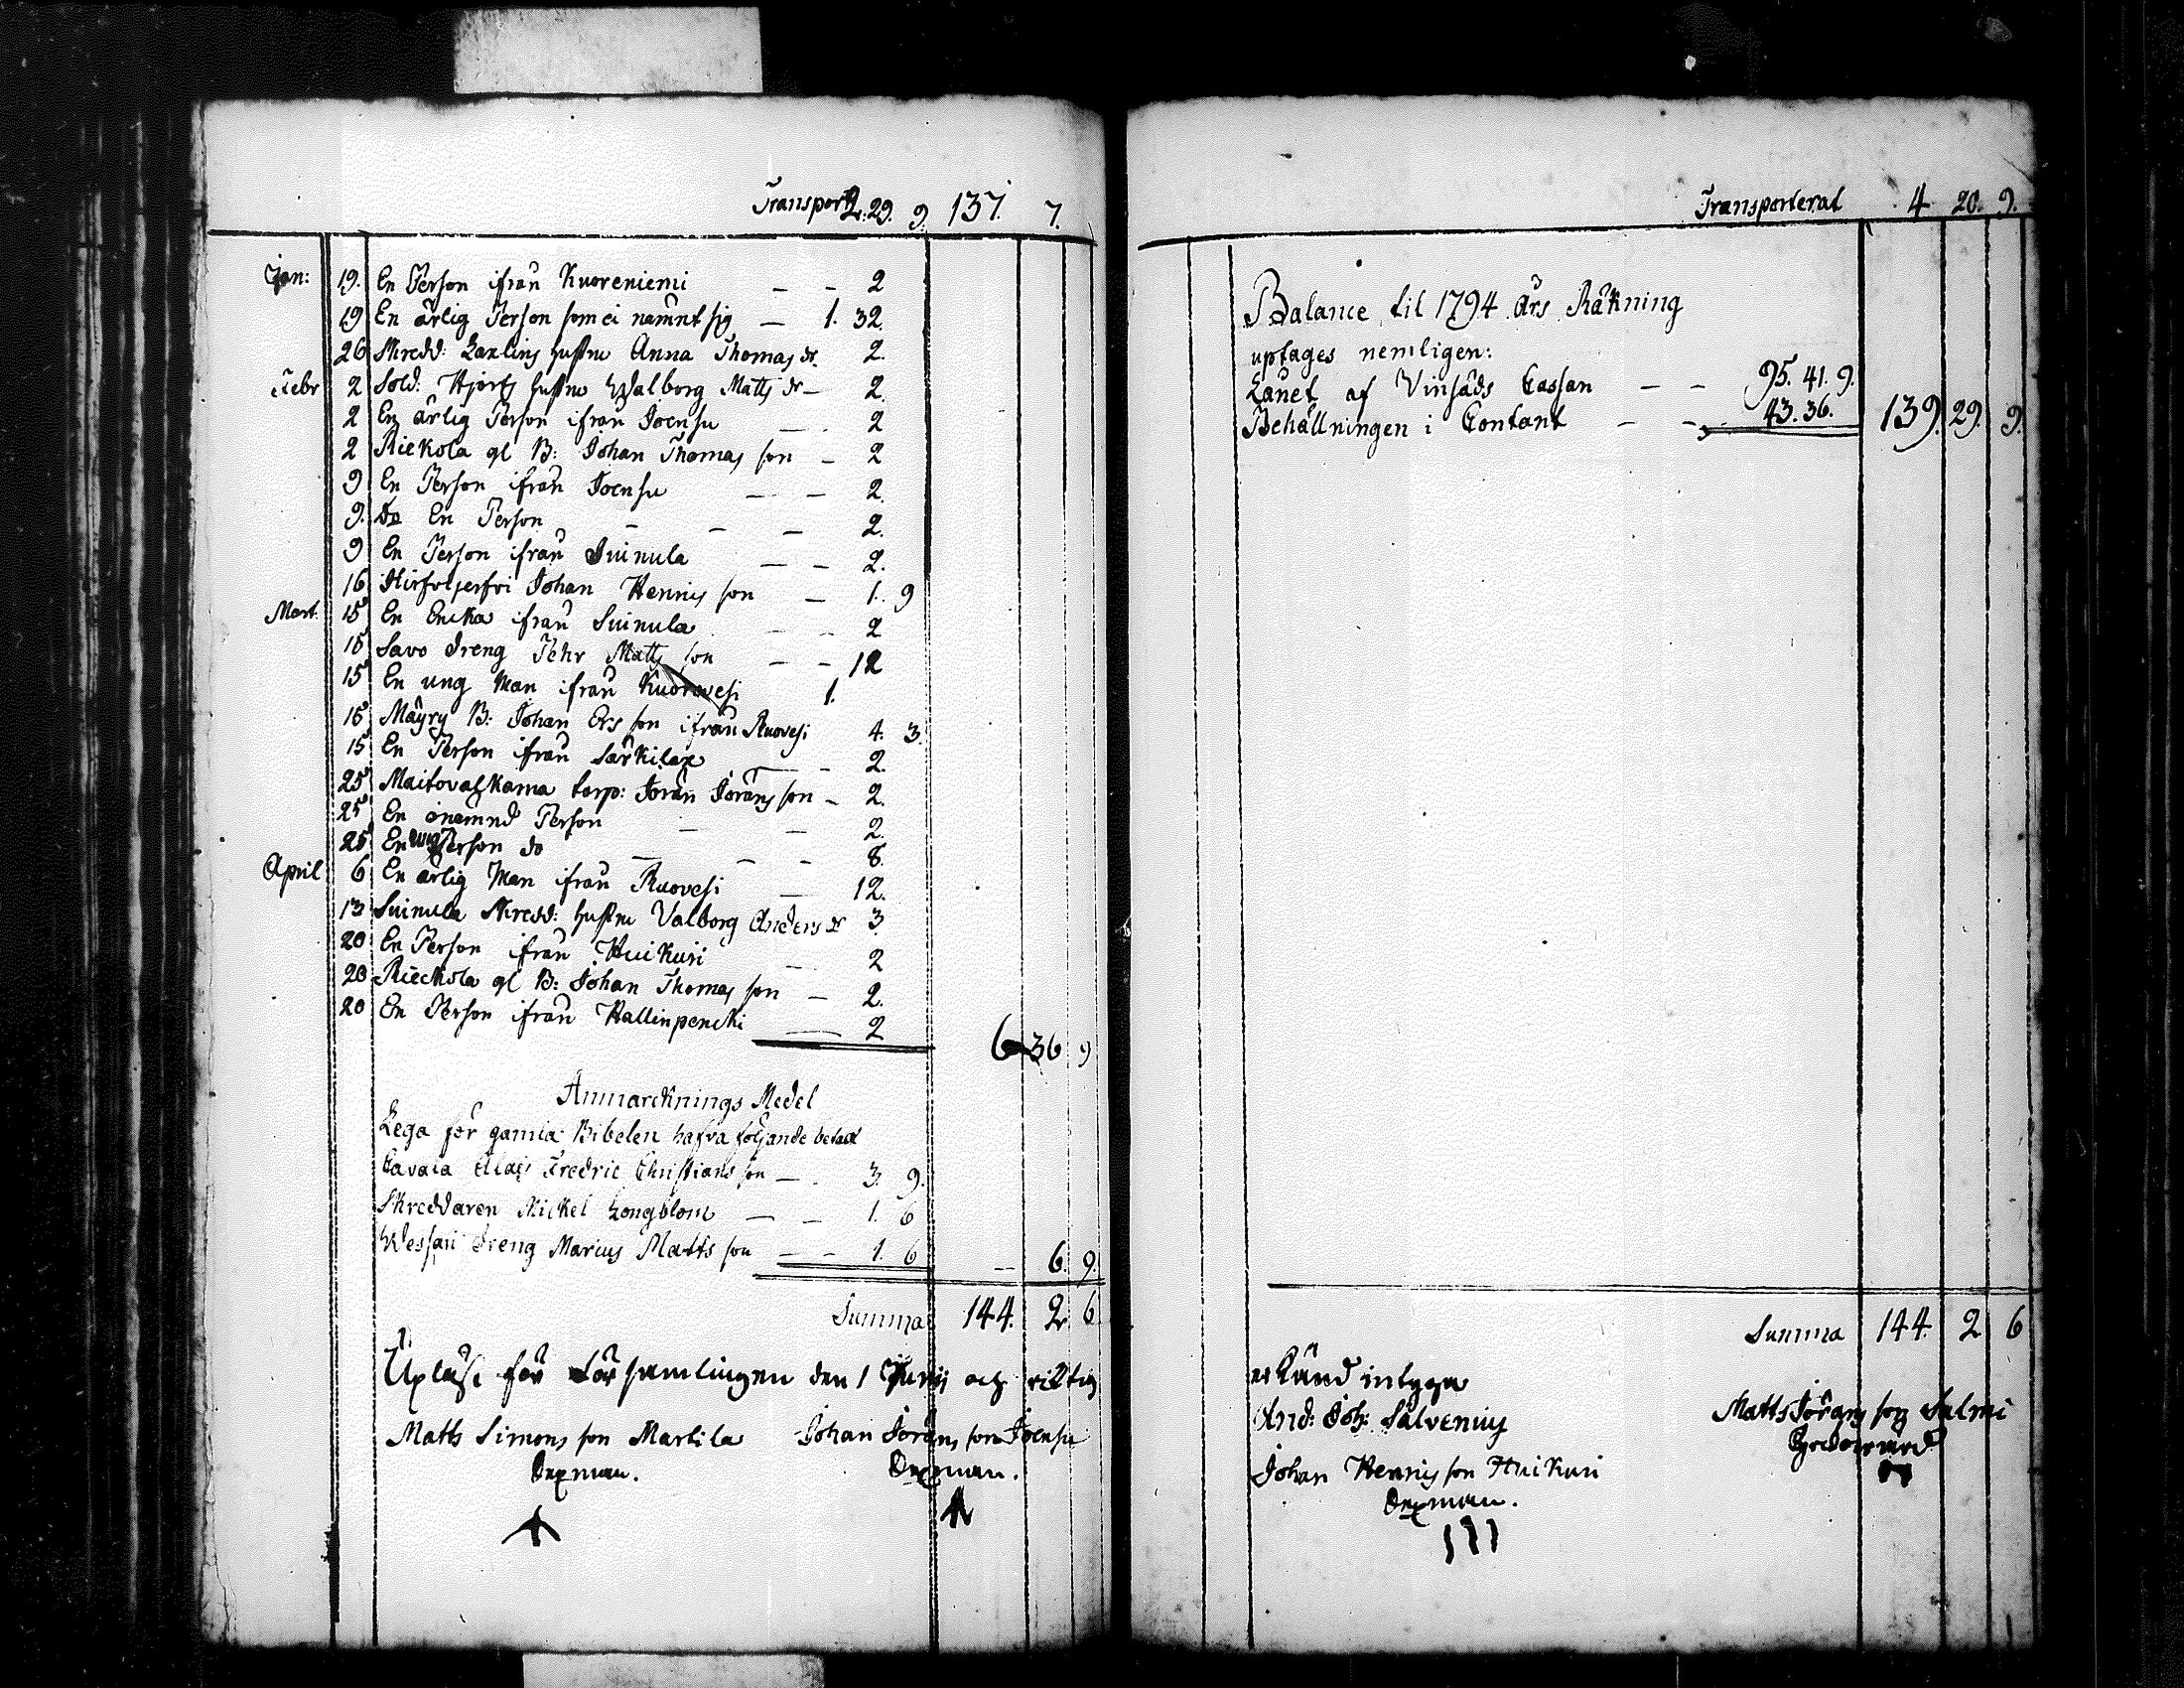 Transport 2. 29. 9. 137. 7.
Jan: 19. En Person ifrån Kuoreniemi — — 2
19 En ärlig Person som ei nämnt sig — 1. 32.
26 Skredd: Laxlins hustru Anna Thomas dr. 2.
Febr 2 Sold: Hjorts hustru Walborg Matts dr — 2.
2 En ärlig Person ifrån Joensu — . 2
2 Riekola gl B: Johan Thomas son — 2
9 En Person ifrån Joensu — — 2.
9. do En Person — — — 2.
9 En Person ifrån Suinula — — 2.
16 Johan Hennis son — 1. 9
Mart. 15 En Encka ifrån Suinula — — 2
15 Savo Dreng Pehr Matts son — — 12
15 En ung Man ifrån Kuorevesi 1.
15 Mäyry B: Johan Ers son ifrån Ruovesi 4. 3.
15 En Person ifrån Särkilax — — 2.
25 Maitovalkama torp: Jöran Jörans son — 2.
25 En onämnd Person — — 2.
25 En ung Person do — — — 8.
April 6 En ärlig Man ifrån Ruovesi — 12.
13 Suinula Skredd: hustru Valborg Anders dr 3.
20 En Person ifrån Huikuri — . 2
20 Rieckola gl B: Johan Thomas son — 2.
20 En Person ifrån Hallinpencki — 2
6 36 9
Anmärcknings Medel
Lega för gamla Bibelen hafva följande betalt
Fredric Christians son — . 3. 9.
Skreddaren Mickel Longblom — — 1. 6
Wessari Dreng Marius Matts son — — 1. 6 — 6. 9.
Summa 144. 2 6
Upläst för Församlingen den 1 Junij och riktig
Matts Simons son Martila Johan Jörans son Joensu
Sexman. Sexman.
Transporterat 4 20. 9.
Balance til 1794 års Räkning
uptages nemligen:
Lånet af Vinsåds Cassan — — 95. 41. 9.
Behållningen i Contant — — 43. 36. 139. 29. 9.
Summa 144. 2 6
erkänd intyga
And: Joh: Salvenius Matts Jörans son Salmi
Kyrckovärd
Johan Hennis son Huikuri
Sexman.